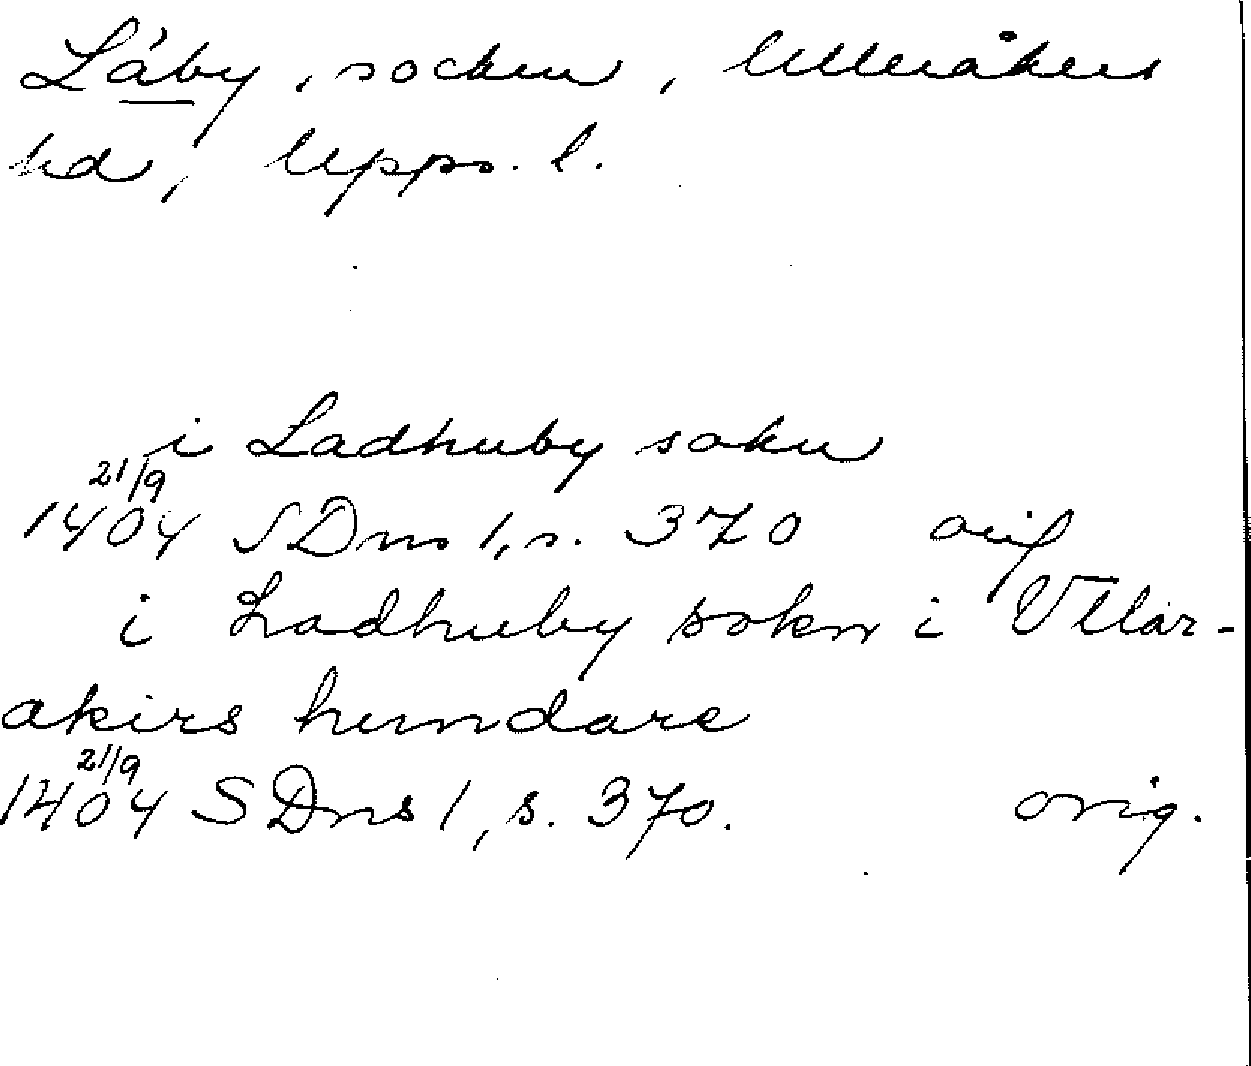 Låby, socken, Ulleråkers
hd, Upps. l.
i Ladhuby sokn
21/9
1404 SDns 1, s. 370 orig
i Ladhuby sokn i Vllar-
akirs hundare
21/9
1404 SDns 1, s. 370. orig.